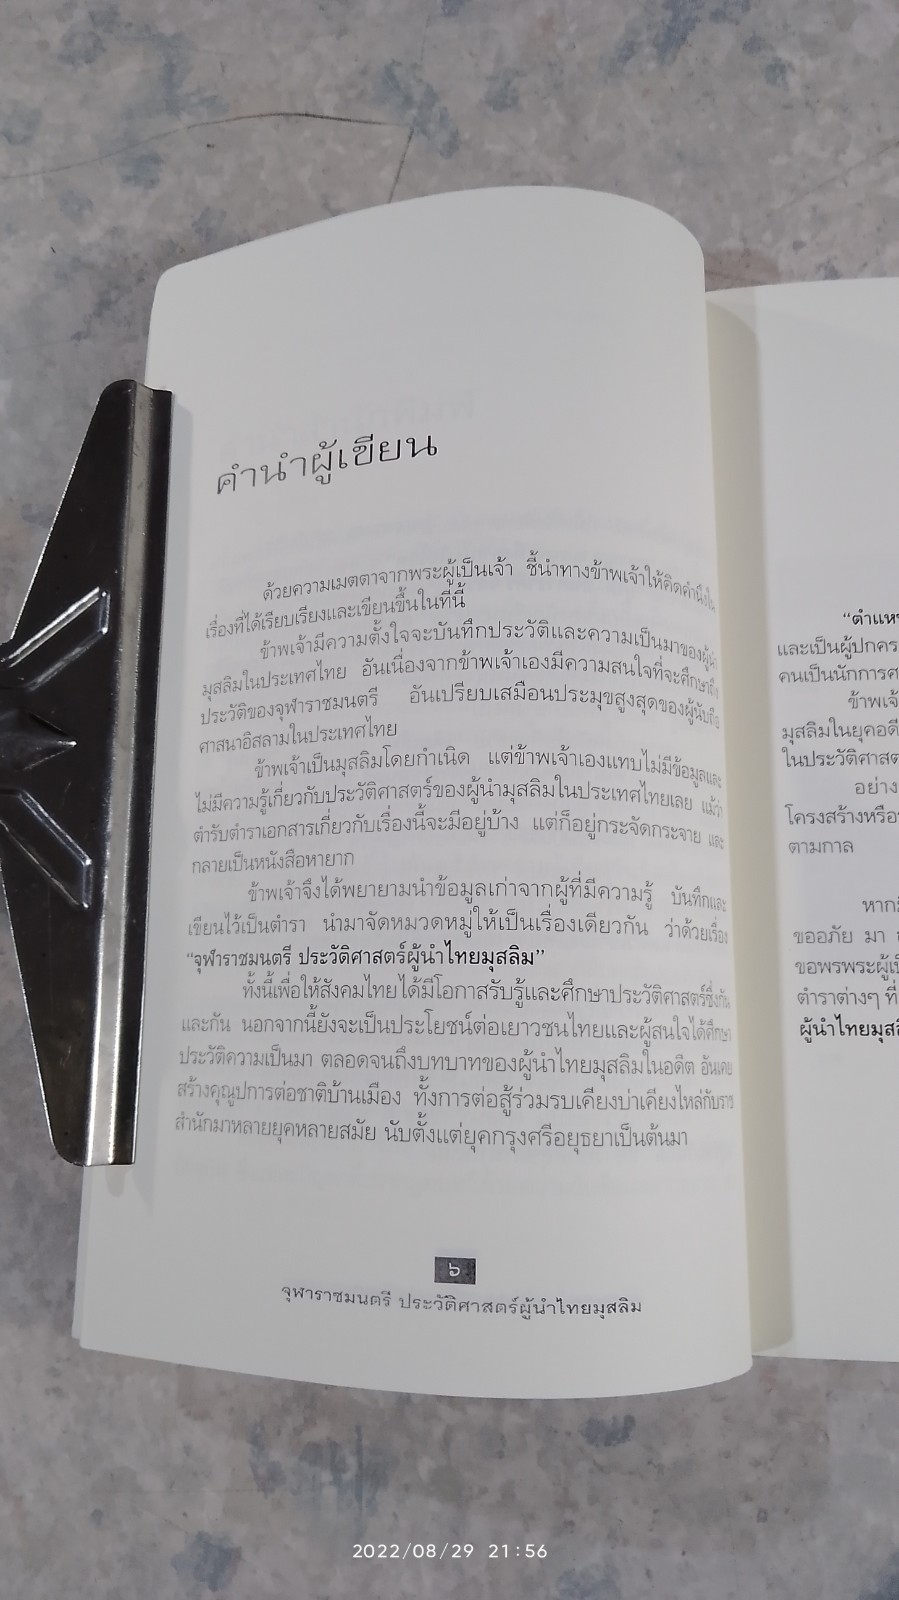 คำนำผู้เขียน
ด้วยความเมตตาจากพระผู้เป็นเจ้า ชี้นำทางข้าพเจ้าให้คิดคำนึงใน
เรื่องที่ได้เรียบเรียงและเขียนขึ้นในที่นี้
ข้าพเจ้ามีความตั้งใจจะบันทึกประวัติและความเป็นมาของผู้นำ
มุสลิมในประเทศไทย อันเนื่องจากข้าพเจ้าเองมีความสนใจที่จะศึกษาถึง
ประวัติของจุฬาราชมนตรี อันเปรียบเสมือนประมุขสูงสุดของผู้นับถือ
ศาสนาอิสลามในประเทศไทย
ข้าพเจ้าเป็นมุสลิมโดยกำเนิด แต่ข้าพเจ้าเองแทบไม่มีข้อมูลและ
ไม่มีความรู้เกี่ยวกับประวัติศาสตร์ของผู้นำมุสลิมในประเทศไทยเลย แม้ว่า
ตำรับตำราเอกสารเกี่ยวกับเรื่องนี้จะมีอยู่บ้าง แต่ก็อยู่กระจัดกระจาย และ
กลายเป็นหนังสือหายาก
ข้าพเจ้าจึงได้พยายามนำข้อมูลเก่าจากผู้ที่มีความรู้ บันทึกและ
เขียนไว้เป็นตำรา นำมาจัดหมวดหมู่ให้เป็นเรื่องเดียวกัน ว่าด้วยเรื่อง
“จุฬาราชมนตรี ประวัติศาสตร์ผู้นำไทยมุสลิม”
ทั้งนี้เพื่อให้สังคมไทยได้มีโอกาสรับรู้และศึกษาประวัติศาสตร์ซึ่งกัน
และกัน นอกจากนี้ยังจะเป็นประโยชน์ต่อเยาวชนไทยและผู้สนใจได้ศึกษา
ประวัติความเป็นมา ตลอดจนถึงบทบาทของผู้นำไทยมุสลิมในอดีต อันเคย
สร้างคุณูปการต่อชาติบ้านเมือง ทั้งการต่อสู้ร่วมรบเคียงบ่าเคียงไหล่กับราช
สำนักมาหลายยุคหลายสมัย นับตั้งแต่ยุคกรุงศรีอยุธยาเป็นต้นมา
๖
จุฬาราชมนตรี ประวัติศาสตร์ผู้นำไทยมุสลิม
“ตำแหน
และเป็นผู้ปกคร
คนเป็นนักการศ
ข้าพเจ้
มุสลิมในยุคอดี
ในประวัติศาสต
อย่าง
โครงสร้างหรือ
ตามกาล
หาก
ขออภัย มา ณ
ขอพรพระผู้เป็
ตำราต่างๆ ที่
ผู้นำไทยมุสลิ
2022/08/29 21:56